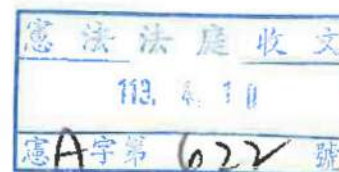 憲法法庭收文
113. 4. 10
憲A字第 622 號